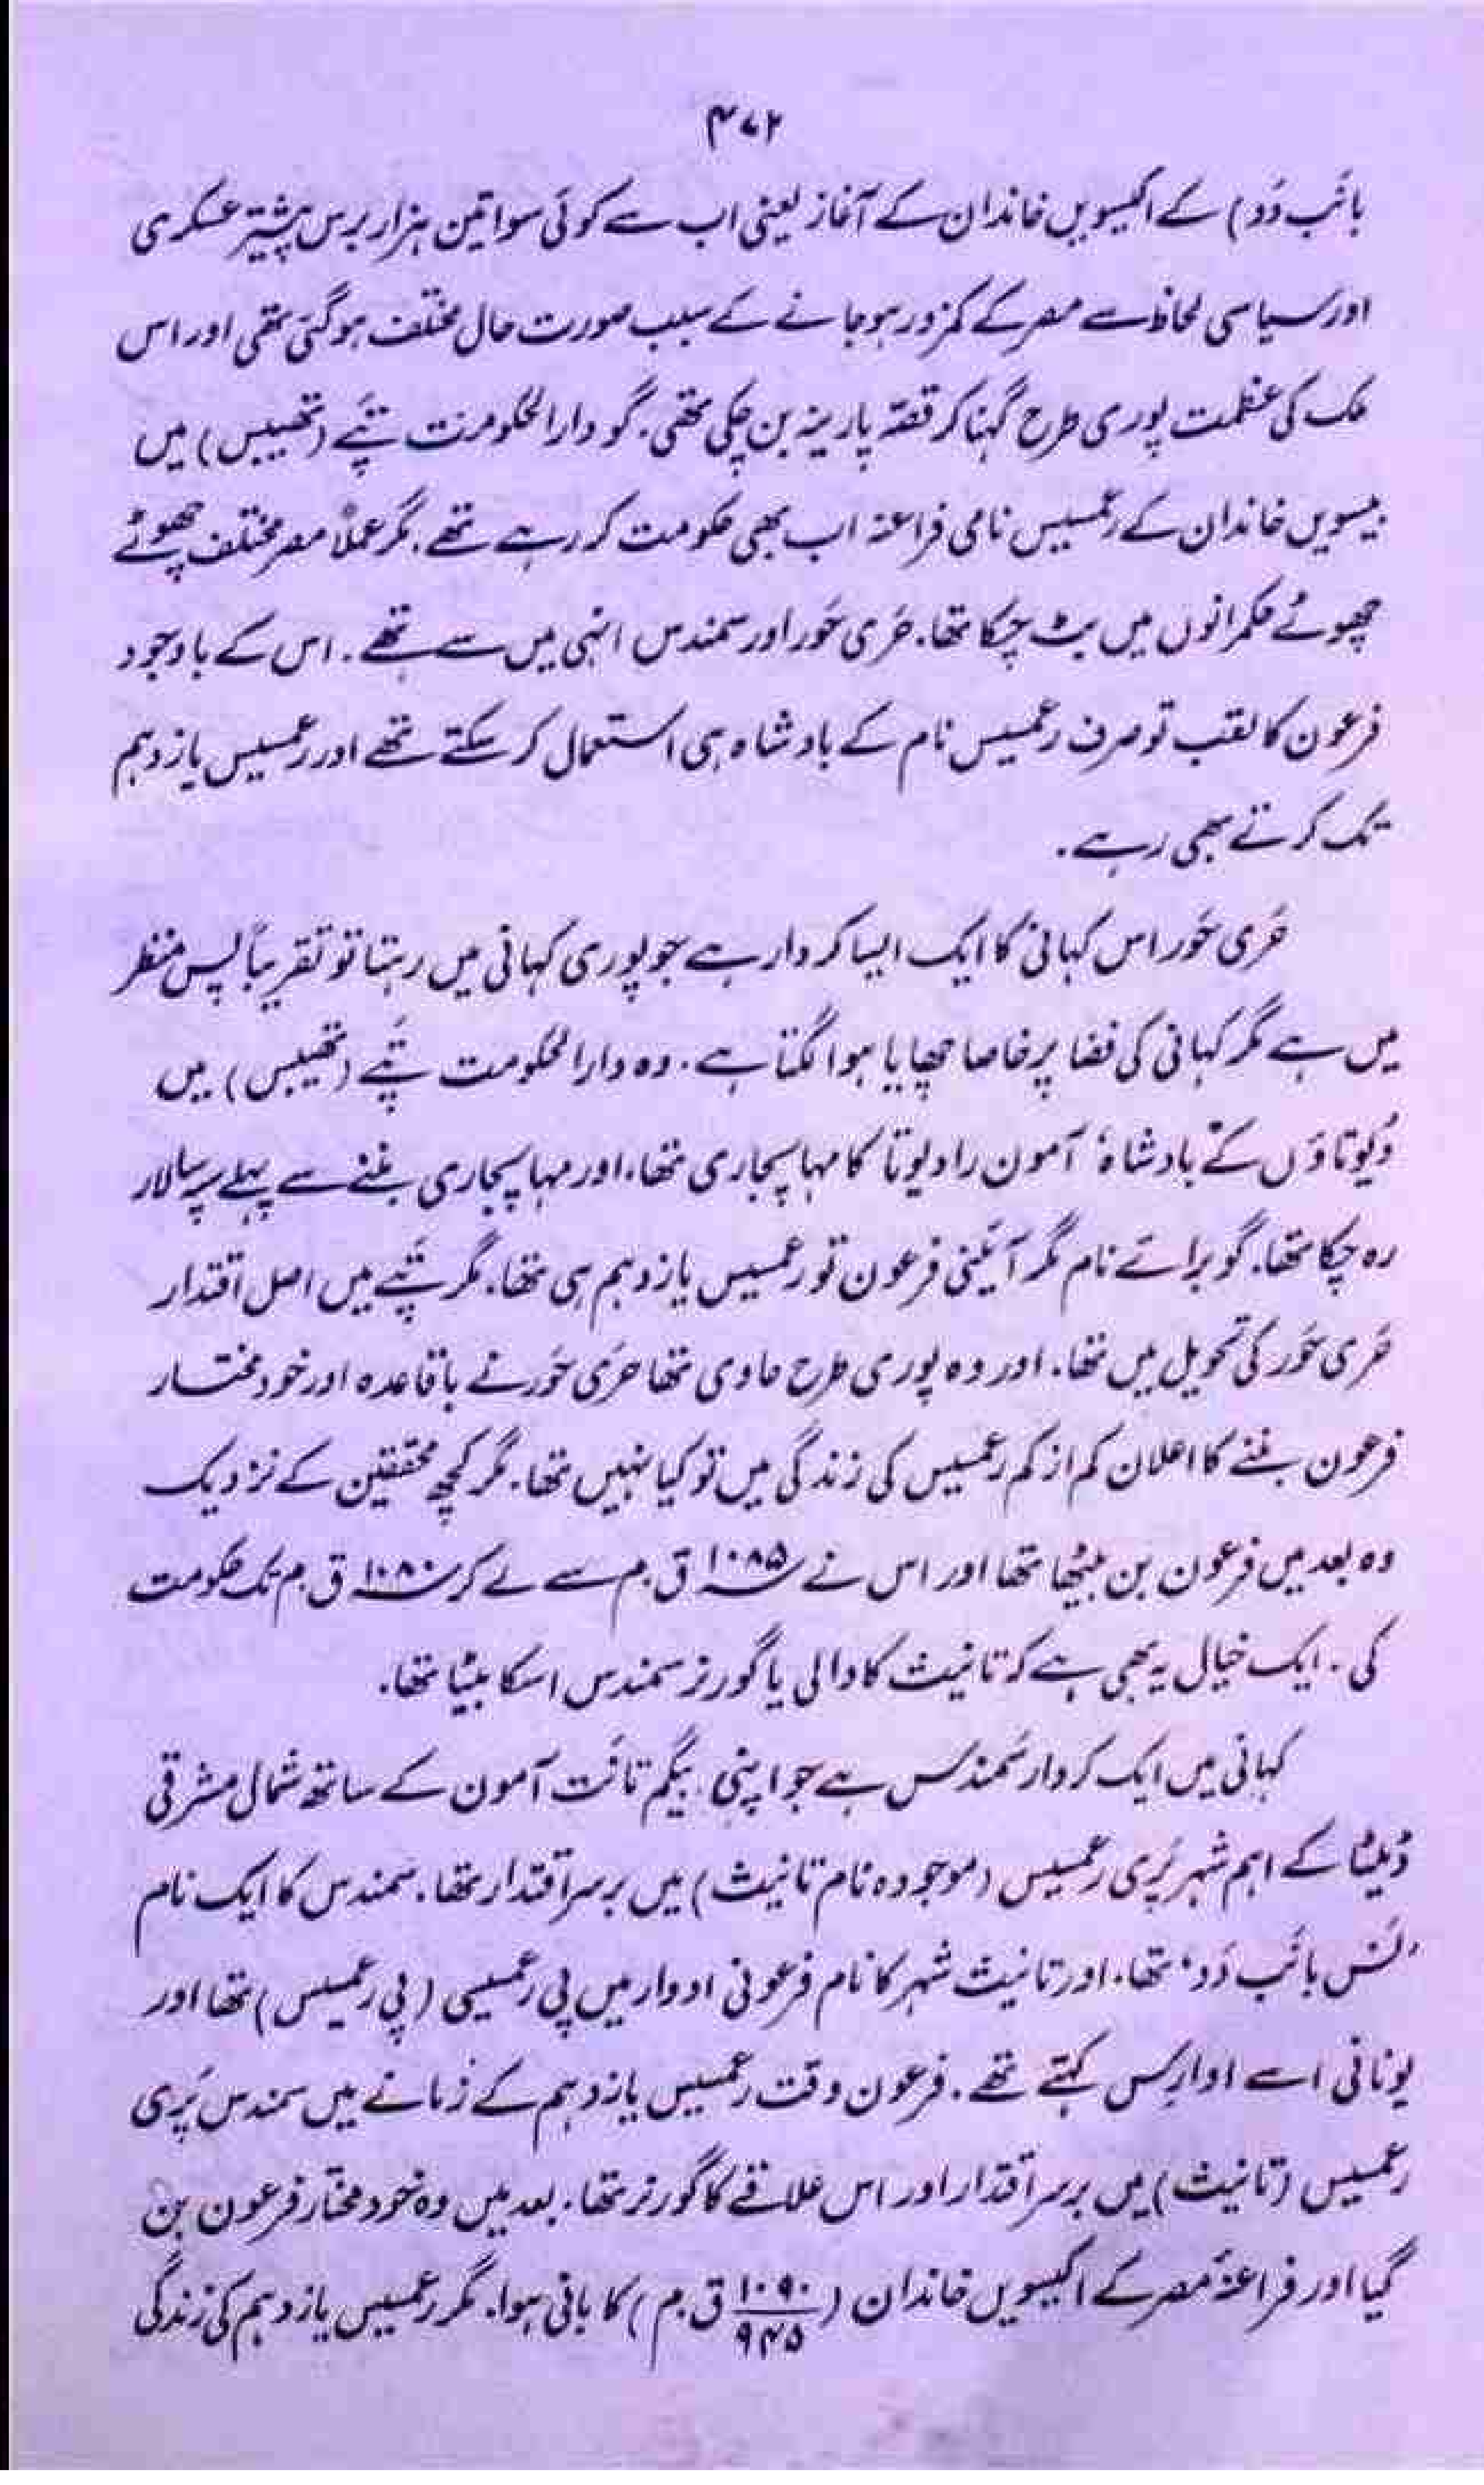 ۴۷۲
بانَب دَد) کے اکیسویں خاندان کے آغاز یعنی اب سے کوئی سوا تین ہزار برس پیشتر عسکری
اور سیاسی لحاظ سے مصر کے کمزور ہو جانے کے سبب صورت حال مختلف ہو گئی تھی اور اس
ملک کی عظمت پوری طرح گہنا کر قصّہ پارینہ بن چکی تھی۔ گو دارالحکومت تپَے (تھیبس) میں
بیسویں خاندان کے رعمسیس نامی فراعنہ اب بھی حکومت کر رہے تھے۔ مگر عملاً مصر مختلف چھوٹے
چھوٹے حکمرانوں میں بٹ چکا تھا۔ حَری حَور اور سمندس انہی میں سے تھے۔ اس کے باوجود
فرعون کا لقب تو صرف رعمسیس نام کے بادشاہ ہی استعمال کر سکتے تھے اور رعمسیس یازدہم
تک کرتے بھی رہے۔
حَری حَور اس کہانی کا ایک ایسا کردار ہے جو پوری کہانی میں رہتا تو تقریباً پس منظر
میں ہے مگر کہانی کی فضا پر خاصا چھایا ہوا لگتا ہے۔ وہ دارالحکومت تپَے (تھیبس) میں
'دیوتاؤں کے بادشاہ' آمون را دیوتا کا مہا پجاری تھا، اور مہا پجاری بننے سے پہلے سپہ سالار
رہ چکا تھا۔ گو برائے نام مگر آئینی فرعون تو رعمسیس یازدہم ہی تھا۔ مگر تپَے میں اصل اقتدار
حَری حَور کی تحویل میں تھا۔ اور وہ پوری طرح حاوی تھا حَری حَور نے باقاعدہ اور خود مختار
فرعون بننے کا اعلان کم از کم رعمسیس کی زندگی میں تو کیا نہیں تھا۔ مگر کچھ محققین کے نزدیک
وہ بعد میں فرعون بن بیٹھا تھا اور اس نے ۱۰۸۵؁ ق۔م سے لے کر ۱۰۸۰؁ ق۔م تک حکومت
کی۔ ایک خیال یہ بھی ہے کہ تانیث کا والی یا گورنر سمندس اسکا بیٹا تھا۔
کہانی میں ایک کردار سَمندس ہے جو اپنی بیگم تانَت آمون کے ساتھ شمال مشرقی
ڈیلٹا کے اہم شہر پَری رعمسیس (موجودہ نام تانیث) میں برسر اقتدار تھا۔ سمندس کا ایک نام
'نَس بانَب دَد' تھا۔ اور تانیث شہر کا نام فرعونی ادوار میں پی رعمسیی (پی رعمسیس) تھا اور
یونانی اسے اوارِس کہتے تھے۔ فرعون وقت رعمسیس یازدہم کے زمانے میں سمندس پَری
رعمسیس (تانیث) میں برسر اقتدار اور اس علاقے کا گورنر تھا۔ بعد میں وہ خود مختار فرعون بن
گیا اور فراعنۂ مصر کے اکیسویں خاندان (۱۰۹۰/۹۴۵ ق۔م) کا بانی ہوا۔ مگر رعمسیس یازدہم کی زندگی